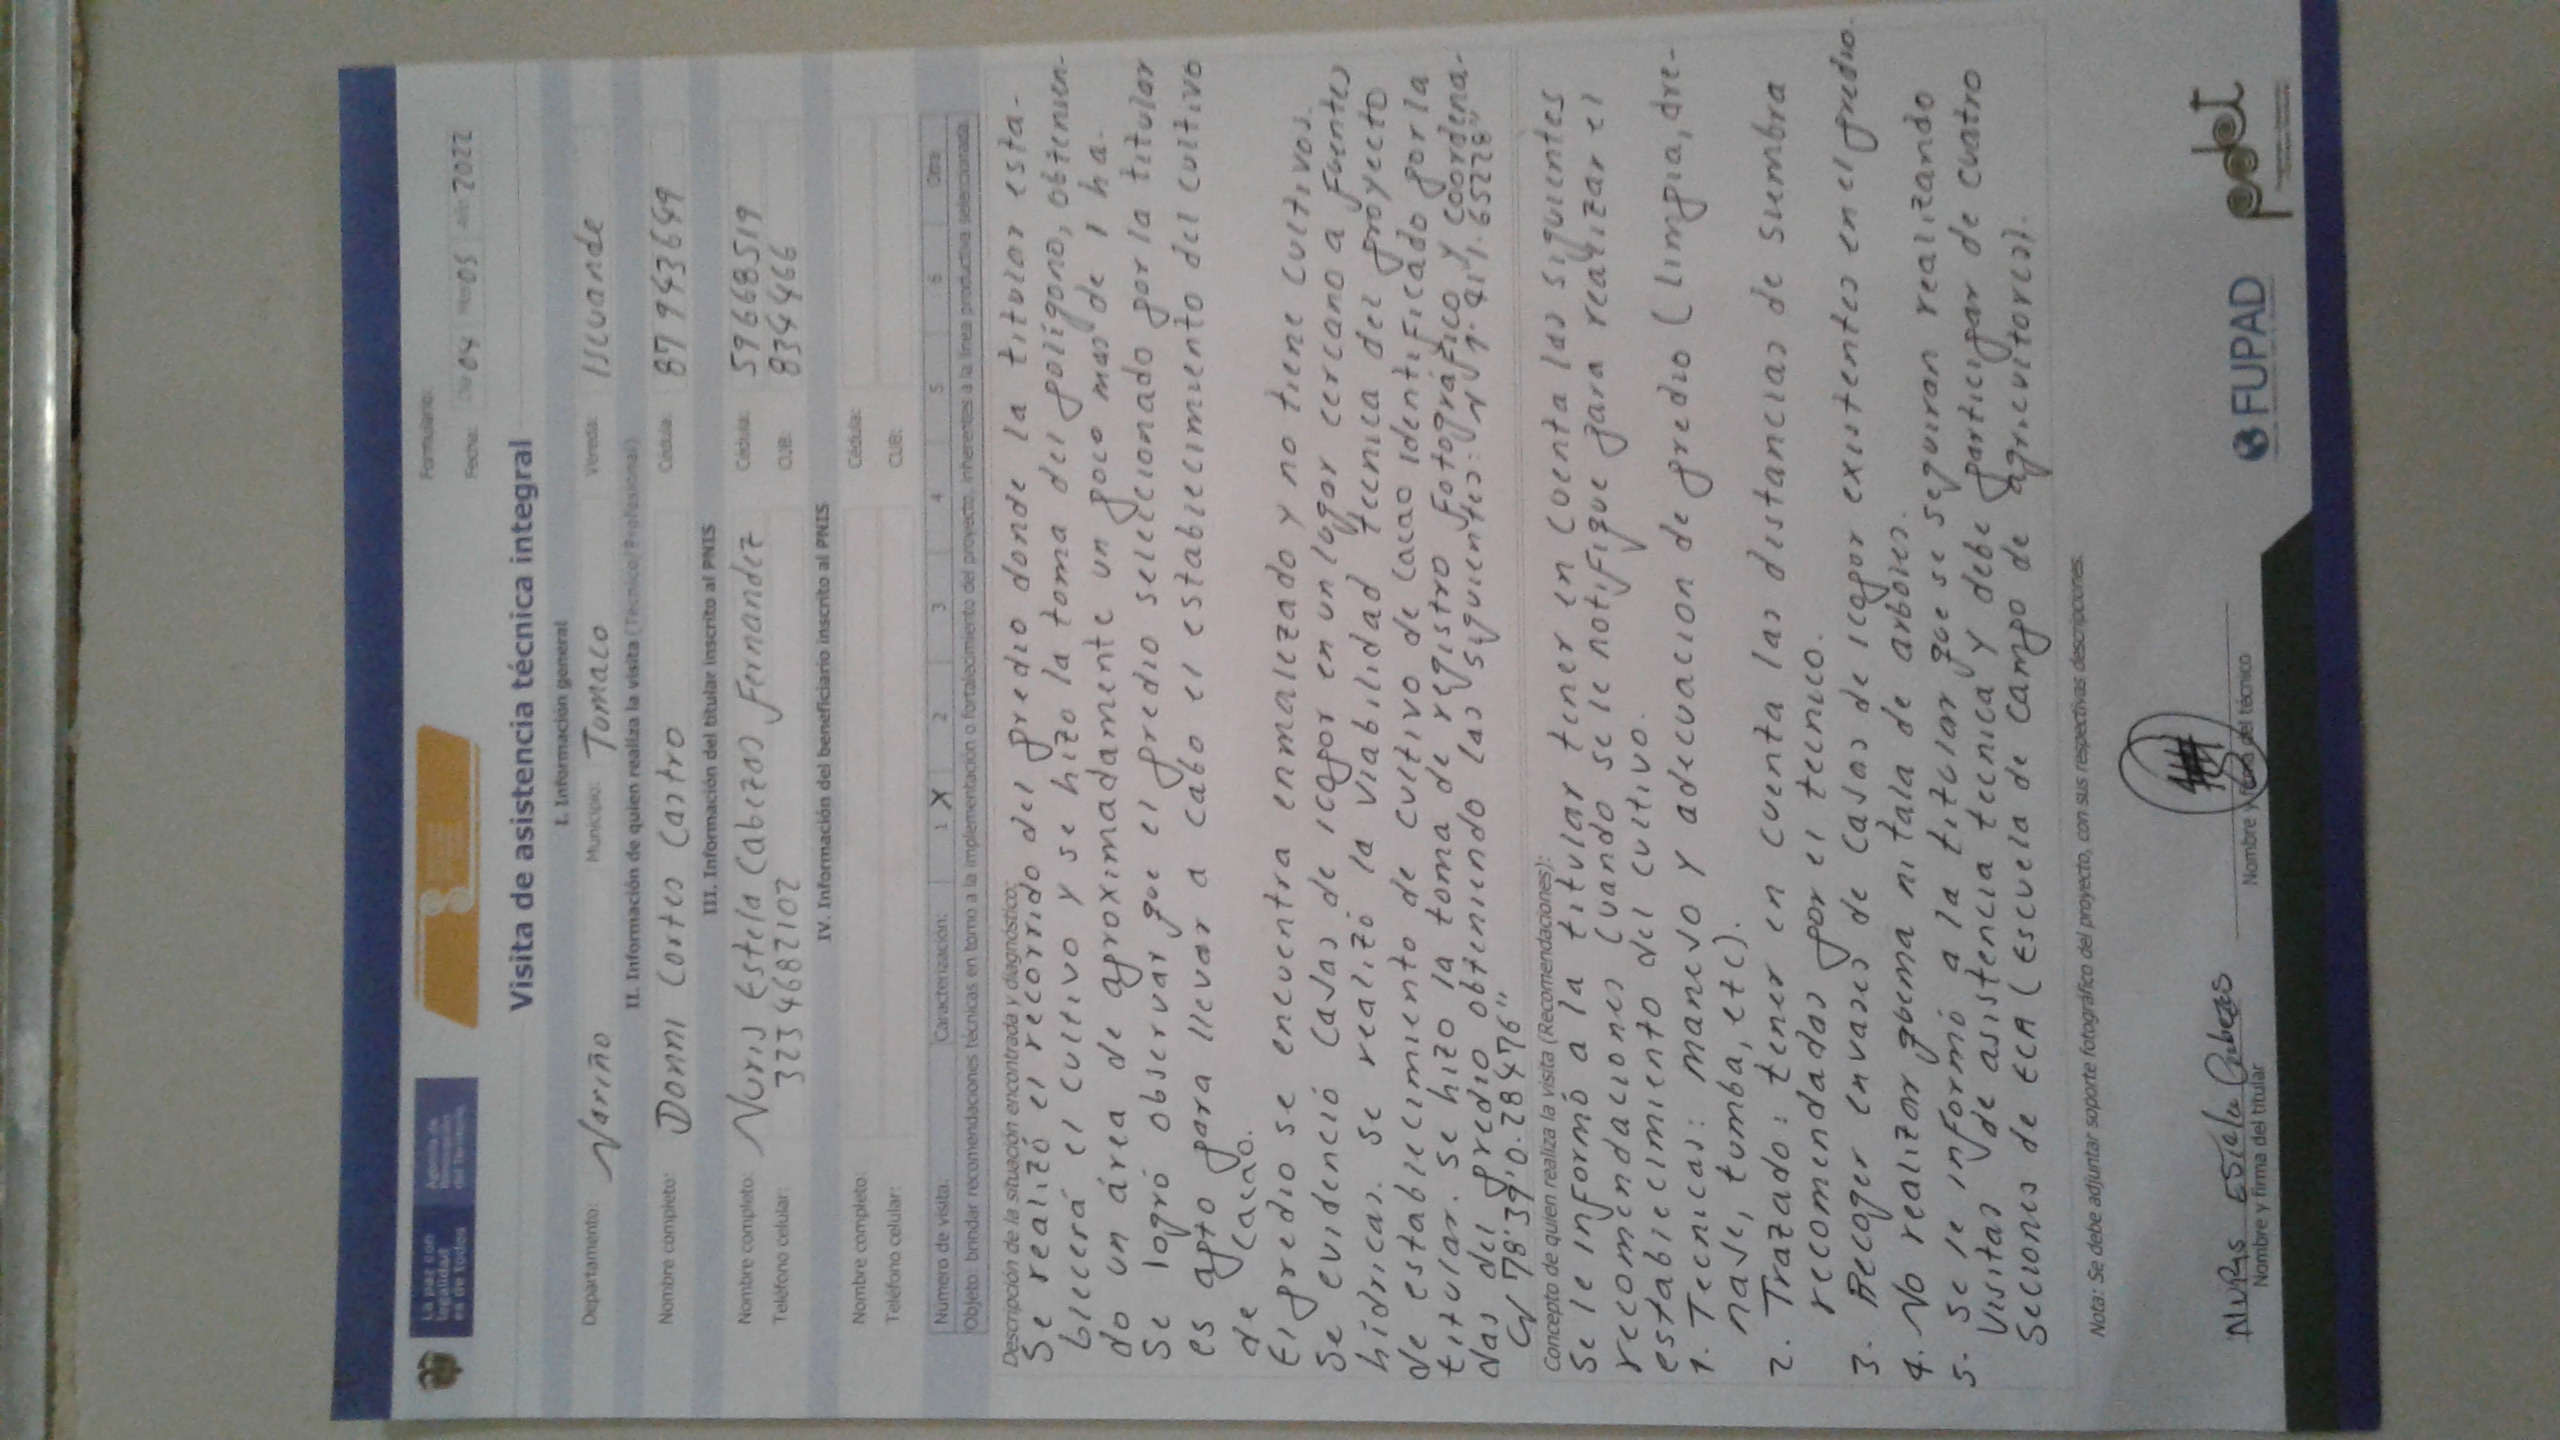 La paz con
legalidad
es de todos
Agencia de
Renovación
del Territorio
Formulario:
Fecha: Día 04 Mes 05 Año 2022
Visita de asistencia técnica integral
I. Información general
Departamento: Nariño Municipio: Tomaco Vereda: Iscuande
II. Información de quien realiza la visita (Técnico/Profesional)
Nombre completo: Donni Cortes Castro Cédula: 87943649
III. Información del titular inscrito al PNIS
Nombre completo: Nuris Estela Cabezas Fernandez Cédula: 59668519
Teléfono celular: 3234687102 CUB: 834466
IV. Información del beneficiario inscrito al PNIS
Nombre completo: Cédula:
Teléfono celular: CUB:
Número de visita: Caracterización: 1 X 2 3 4 5 6 Otra
Objeto: brindar recomendaciones técnicas en torno a la implementación o fortalecimiento del proyecto, inherentes a la línea productiva seleccionada.
Descripción de la situación encontrada y diagnóstico:
Se realizó el recorrido del predio donde la titular esta-
blecerá el cultivo y se hizo la toma del poligono, obtenien-
do un área de aproximadamente un poco mas de 1 ha.
Se logró observar que el predio seleccionado por la titular
es apto para llevar a cabo el establecimiento del cultivo
de cacao.
El predio se encuentra enmalezado y no tiene cultivos.
Se evidenció Casas de icopor en un lugar cercano a fuentes
hídricas. Se realizó la viabilidad tecnica del proyecto
de establecimiento de cultivo de cacao identificado por la
titular. Se hizo la toma de registro fotográfico y coordena-
das del predio obteniendo las siguientes:
W 78°39'0.28476"
Concepto de quien realiza la visita (Recomendaciones):
Se le informó a la titular tener en cuenta las siguientes
recomendaciones cuando se le notifique para realizar el
establecimiento del cultivo.
1. Tecnicas: manejo y adecuacion de predio (limpia, dre-
naje, tumba, etc).
2. Trazado: tener en cuenta las distancias de siembra
recomendadas por el tecnico.
3. Recoger envases de Casas de icopor existentes en el predio.
4. No realizar quema ni tala de arboles.
5. Se le informó a la titular que se seguiran realizando
Visitas de asistencia tecnica y debe participar de cuatro
Secciones de ECA (Escuela de campo de agricultores).
Nota: Se debe adjuntar soporte fotográfico del proyecto, con sus respectivas descripciones.
Nuris Estela Cabezas
Nombre y firma del titular
Nombre y firma del técnico
FUPAD
pdet